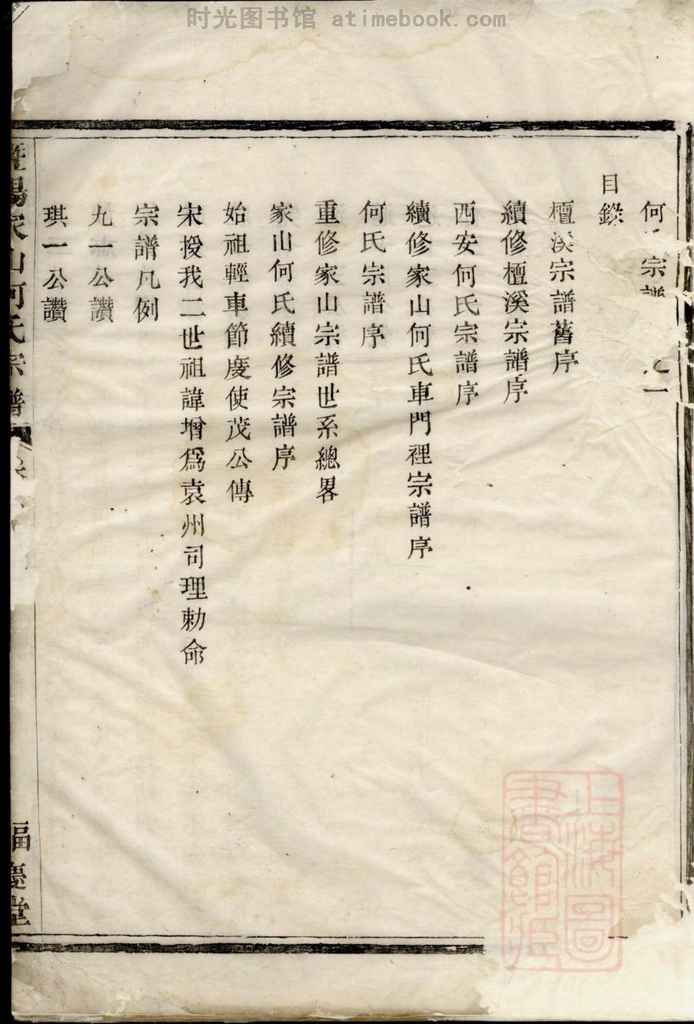 时光图书馆 atimebook.com
何 宗譜 一
目錄
檀溪宗譜舊序
續修檀溪宗譜序
西安何氏宗譜序
續修家山何氏車門裡宗譜序
何氏宗譜序
重修家山宗譜世系總畧
家山何氏續修宗譜序
始祖輕車節度使茂公傳
宋授我二世祖諱增爲袁州司理勅命
宗譜凡例
九一公讚
琪一公讚
暨陽家山何氏宗譜
福慶堂
上海圖
書館